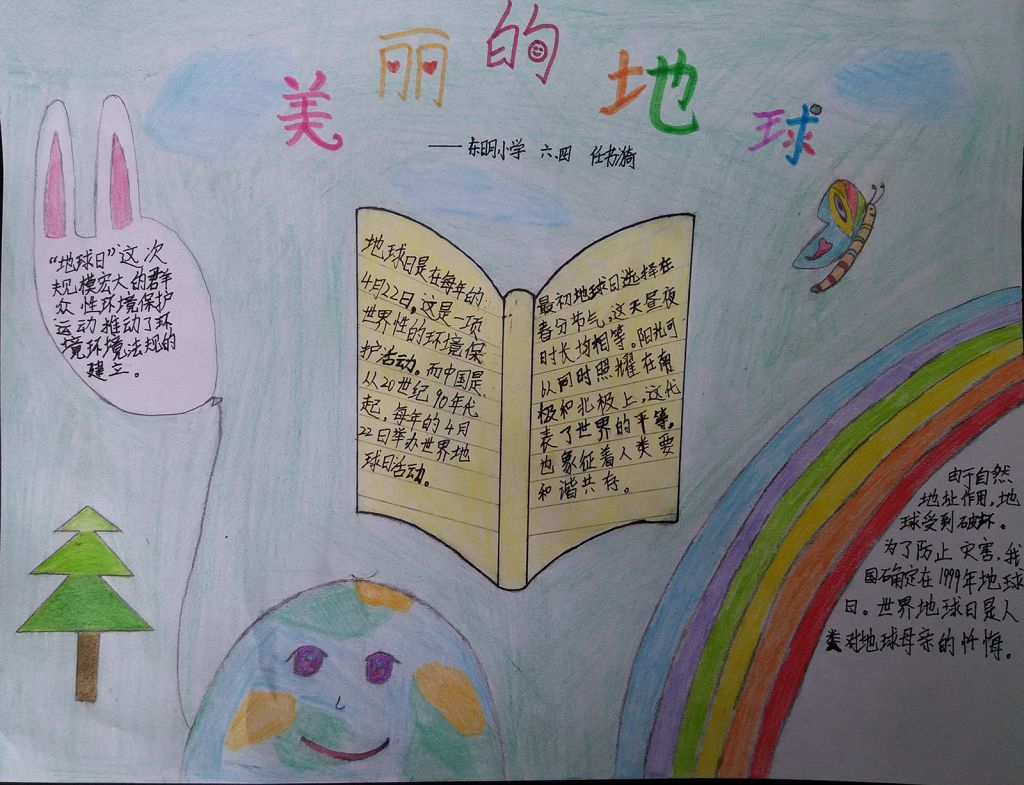 美丽的地球
——东明小学 六.四 任书漪
"地球日"这次
规模宏大的群
众性环境保护
运动推动了环
境环境法规的
建立。
地球日是在每年的
4月22日,这是一项
世界性的环境保
护活动。而中国是
从20世纪90年代
起,每年的4月
22日举办世界地
球日活动。
最初地球日选择在
春分节气,这天昼夜
时长均相等。阳光可
以同时照耀在南
极和北极上,这代
表了世界的平等。
也象征着人类要
和谐共存。
由于自然
地址作用,地
球受到破坏。
为了防止灾害,我
国确定在1999年地球
日。世界地球日是人
类对地球母亲的忏悔。